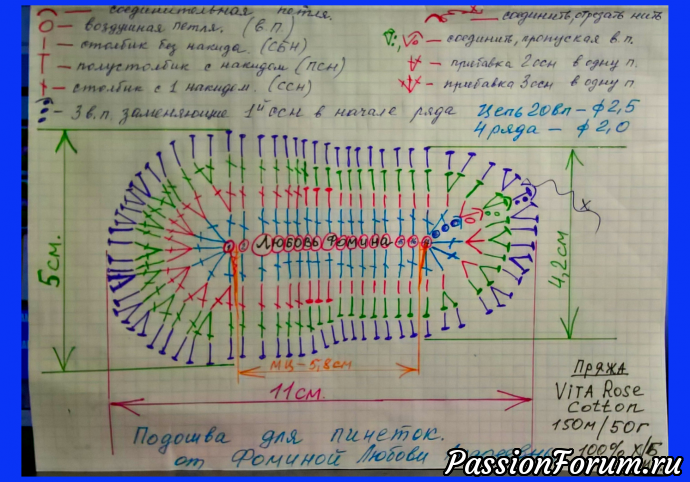 — соединительная петля.
— воздушная петля. (в.п.)
— столбик без накида. (СБН)
— полустолбик с накидом. (ПСН)
— столбик с 1 накидом. (ССН)
— 3 в.п. заменяющие 1й ссн в начале ряда
— соединить, отрезать нить
— соединить, пропуская в.п.
— прибавка 2 ссн в одну п.
— прибавка 3 ссн в одну п
Цепь 20вп — ф 2,5
4 ряда — ф 2,0
Любовь Фомина
5 см.
4,2 см
мц - 5,8 см
11 см.
Пряжа
VITA Rose
Cotton
150м/50г
100% х/б
Подошва для пинеток.
от Фоминой Любови
PassionForum.ru